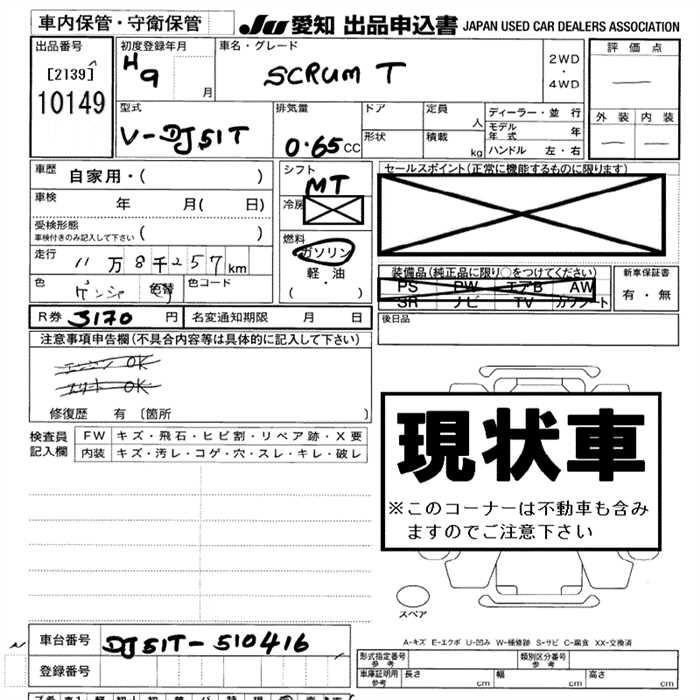 車内保管・守衛保管
JU 愛知 出品申込書 JAPAN USED CAR DEALERS ASSOCIATION
出品番号
[2139]
10149
初度登録年月
H9 月
車名・グレード
SCRUM T
2WD
・
4WD
評価点
外装 内装
型式
V-DJ51T
排気量
0.65 CC
ドア
形状
定員 人
積載 kg
ディーラー・並行
モデル年式 年
ハンドル 左・右
車歴 自家用・( )
車検 年 月( 日)
受検形態
車検付きのみ記入して下さい ( )
走行 11万8千257km
色
色替
色コード
R券 3170 円
名変通知期限 月 日
シフト
MT
冷房
燃料
ガソリン
軽・油
( ・ )
セールスポイント(正常に機能するものに限ります)
装備品(純正品に限り○をつけてください)
PS PW エアB AW
SR ナビ TV カワシート
新車保証書
有・無
後日品
注意事項申告欄(不具合内容等は具体的に記入して下さい)
エンジン OK
OK
修復歴 有 〔箇所 〕
検査員記入欄
FW キズ・飛石・ヒビ割・リペア跡・X要
内装 キズ・汚レ・コゲ・穴・スレ・キレ・破レ
現状車
※このコーナーは不動車も含み
ますのでご注意下さい
スペア
車台番号 DJ51T-510416
登録番号
A-キズ E-エクボ U-凹み W-補修跡 S-サビ C-腐食 XX-交換済
形式指定番号 参考
類別区分番号 参考
車庫証明用 参考
長さ cm
幅 cm
高さ cm